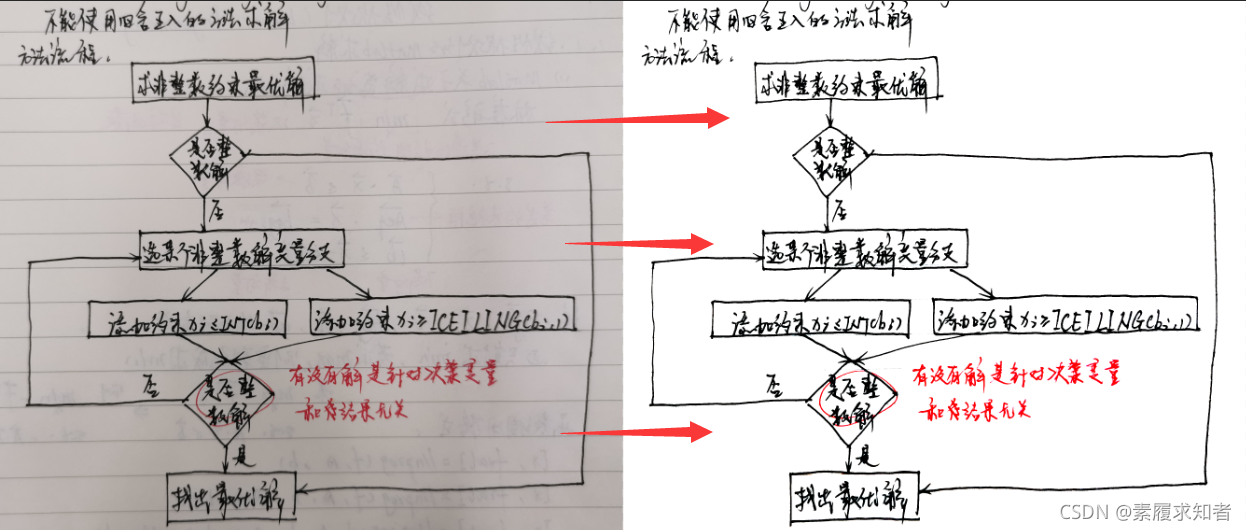 不能使用四舍五入的方法求解
方法流程.
求非整数约束最优解
是否整
数解
否
选某个非整数解变量分支
添加约束xi≤INT(bi)
添加约束xi≥ICEILING(bi,1)
否
是否整
数解
有没有解是针对决策变量
和寿结果无关
是
找出最优解
不能使用四舍五入的方法求解
方法流程.
求非整数约束最优解
是否整
数解
否
选某个非整数解变量分支
添加约束xi≤INT(bi)
添加约束xi≥ICEILING(bi,1)
否
是否整
数解
有没有解是针对决策变量
和结果无关
是
找出最优解
CSDN @素履求知者